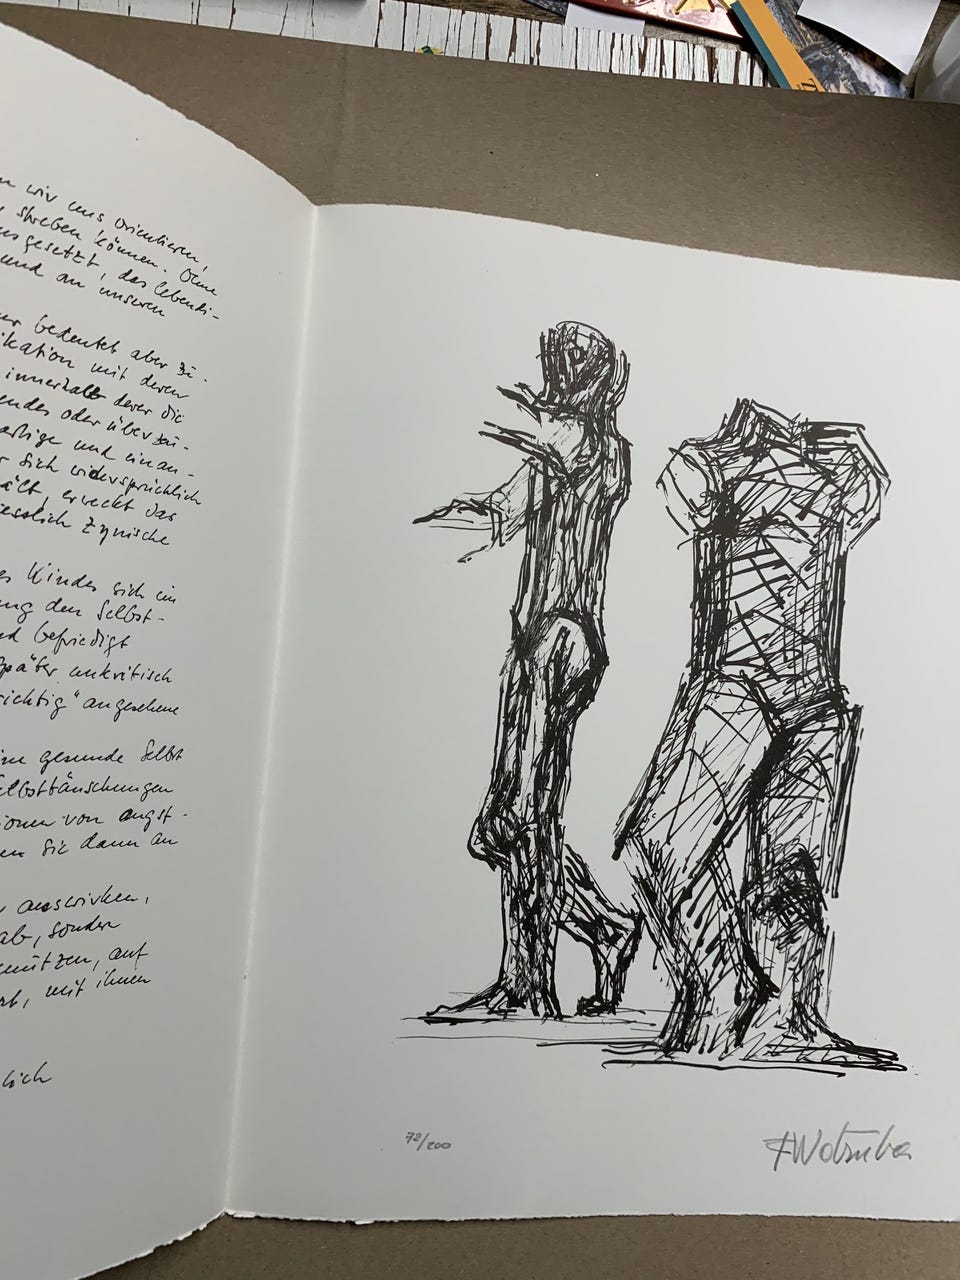 wir uns orientieren,
streben können. Ohne
ausgesetzt, das lebendi-
und an unseren
bedeutet aber zu-
ikation mit deren
innerhalb derer die
endes oder überzeu-
artige und einan-
sich widersprüchlich
ält, erweckt das
esslich Zynische
es Kindes sich im
ung den Selbst-
nd befriedigt
später unkritisch
richtig" angesehene
gesunde Selbst
elbsttäuschungen
ionen von angst-
en Sie dann an
auswirken,
ab, sondern
mützen, auf
mit ihnen
lich
72/200
FWotruba